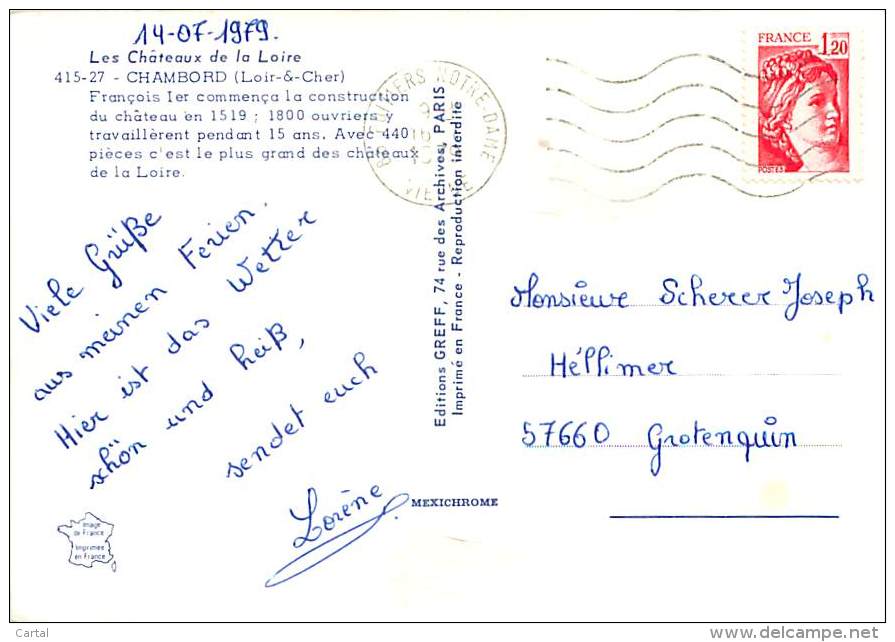 14-07-1979.
Les Châteaux de la Loire
415-27 - CHAMBORD (Loir-&-Cher)
François Ier commença la construction
du château en 1519 ; 1800 ouvriers y
travaillèrent pendant 15 ans. Avec 440
pièces c'est le plus grand des châteaux
de la Loire.
NOTRE-DAME
VIENNE
FRANCE 1,20
POSTES
Viele Grüße
aus meinen Ferien.
Hier ist das Wetter
schön und heiß,
sendet euch
Lorène
Editions GREFF, 74 rue des Archives, PARIS
Imprimé en France - Reproduction interdite
MEXICHROME
Monsieur Scherer Joseph
Héllimer
57660 Grotenquin
Image
de France
Imprimée
en France
Cartal
www.delcampe.net